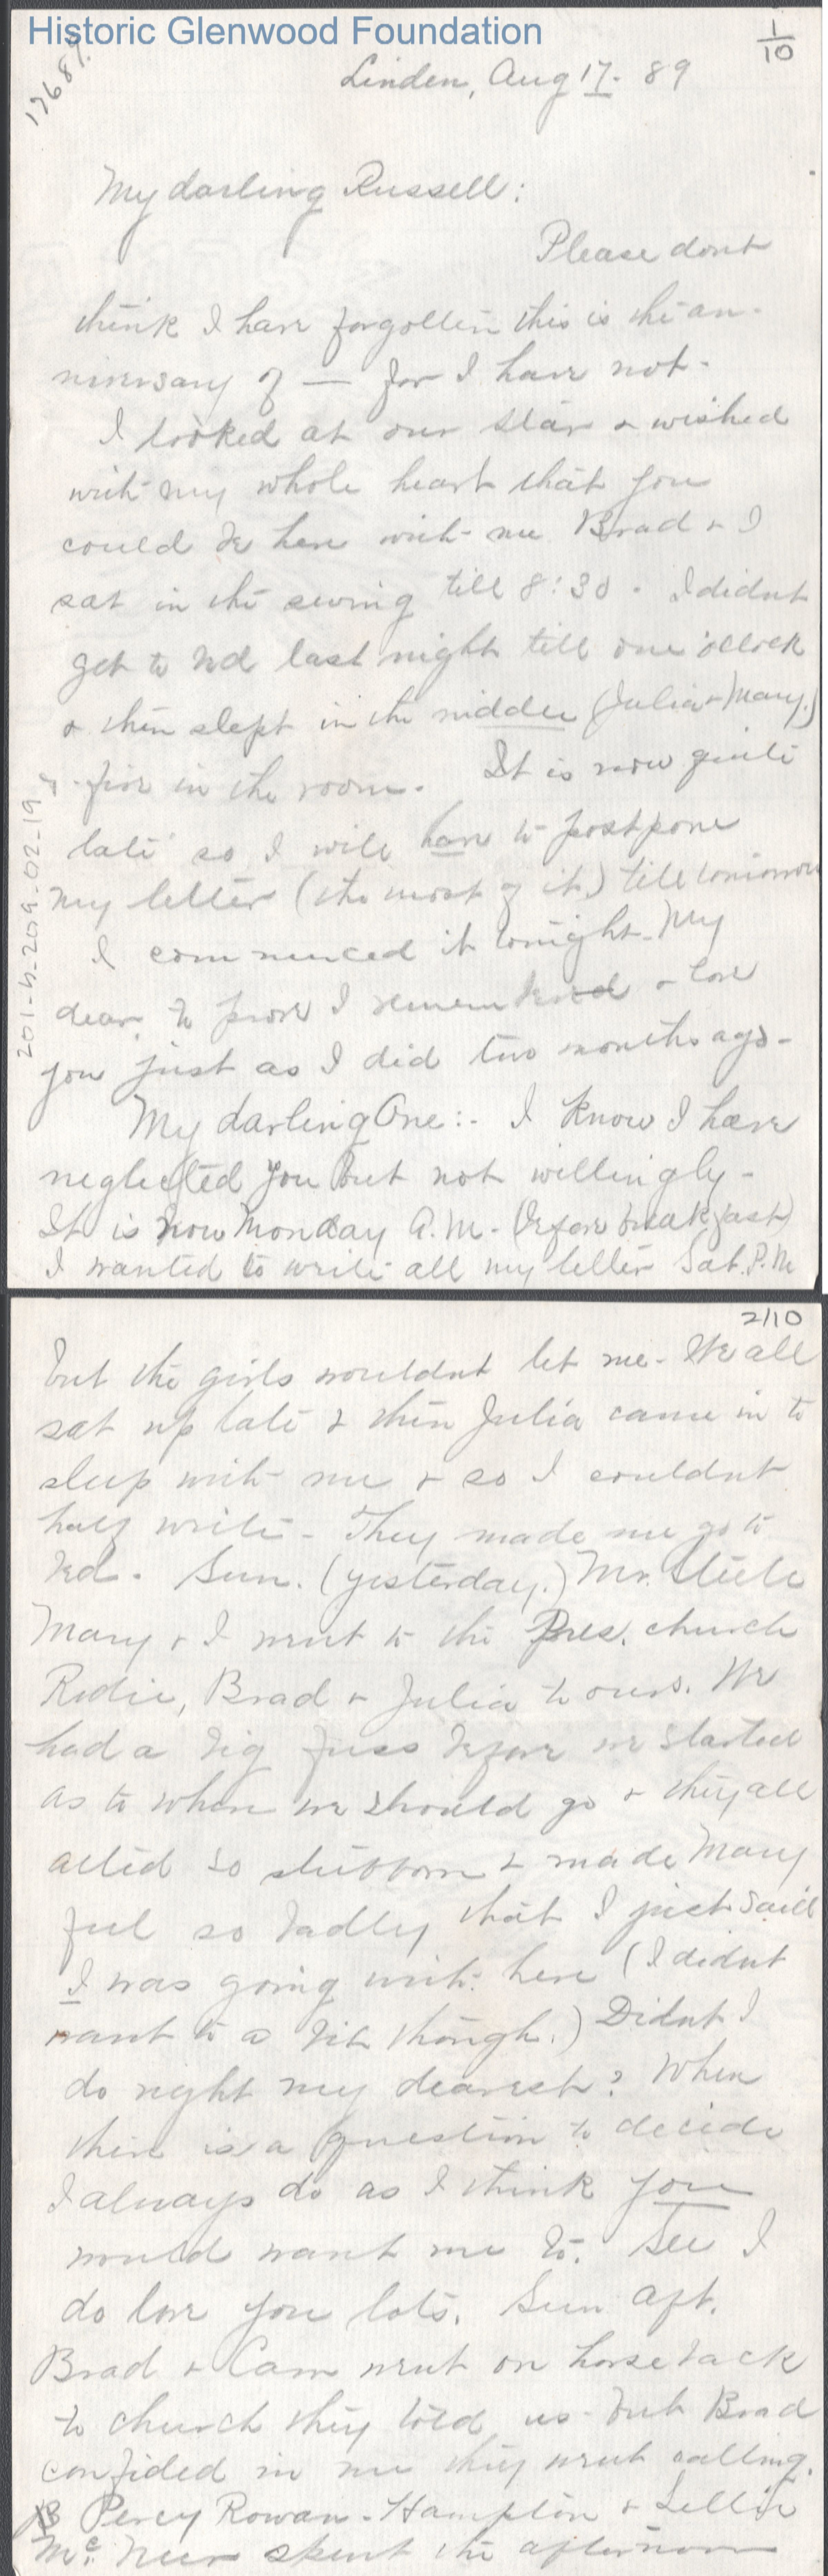 Historic Glenwood Foundation
1/10
1768
Linden, Aug 17. 89
My darling Russell:
Please dont
think I have forgotten this is the an-
niversary of — for I have not-
I looked at our star & wished
with my whole heart that you
could be here with me Brad & I
sat in the swing till 8:30. I didnt
get to bed last night till one o'clock
& then slept in the middle (Julia & Mary.)
& fire in the room. It is now quite
late so I will have to postpone
my letter (the most of it.) till tomorrow
I commenced it tonight. My
dear, to prove I remembered & love
you just as I did two months ago-
My darling One:- I know I have
neglected you but not willingly-
It is now Monday A.M. (before breakfast)
I wanted to write all my letter Sat. P.M
201-h-209-02-19
2/10
but the girls wouldnt let me- We all
sat up late & then Julia came in to
sleep with me & so I couldnt
half write- They made me go to
bed. Sun. (yesterday.) Mr. Steele
Mary & I went to the Pres. church
Rodie, Brad & Julia to ours. We
had a big fuss before we started
as to where we should go & they all
acted so stubborn & made Mary
feel so badly that I just said
I was going with her (I didnt
want to a bit though.) Didnt I
do right my dearest? When
there is a question to decide
I always do as I think you
would want me to. See I
do love you lots. Sun aft.
Brad & Cam went on horseback
to church they told us but Brad
confided in me they went calling.
Percy Rowan-Hampton & Lellie
Mc. Neer spent the afternoon